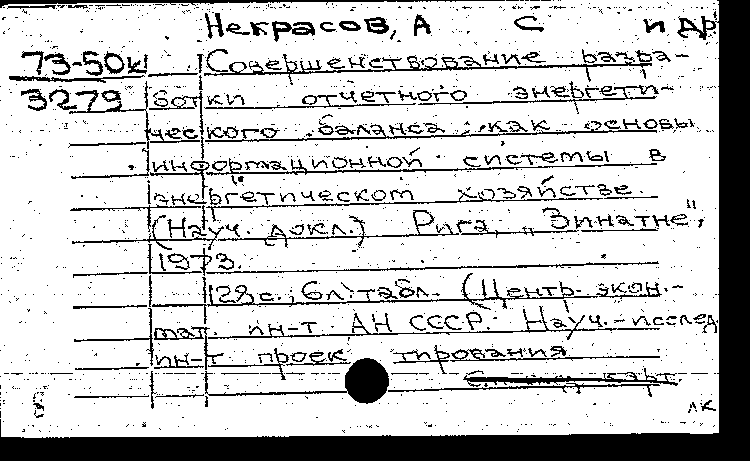 Некрасов, А С и др
73-50к Совершенствование разра-
3279 ботки отчетного энергети-
ческого баланса, как основы
информационной системы в
энергетическом хозяйстве.
(Науч. докл.) Рига, „Зинатне",
1973.
128 с.; 6 л. табл. (Центр. экон.-
мат. ин-т АН СССР. Науч.-исслед.
ин-т проек тирования
карт.
лк